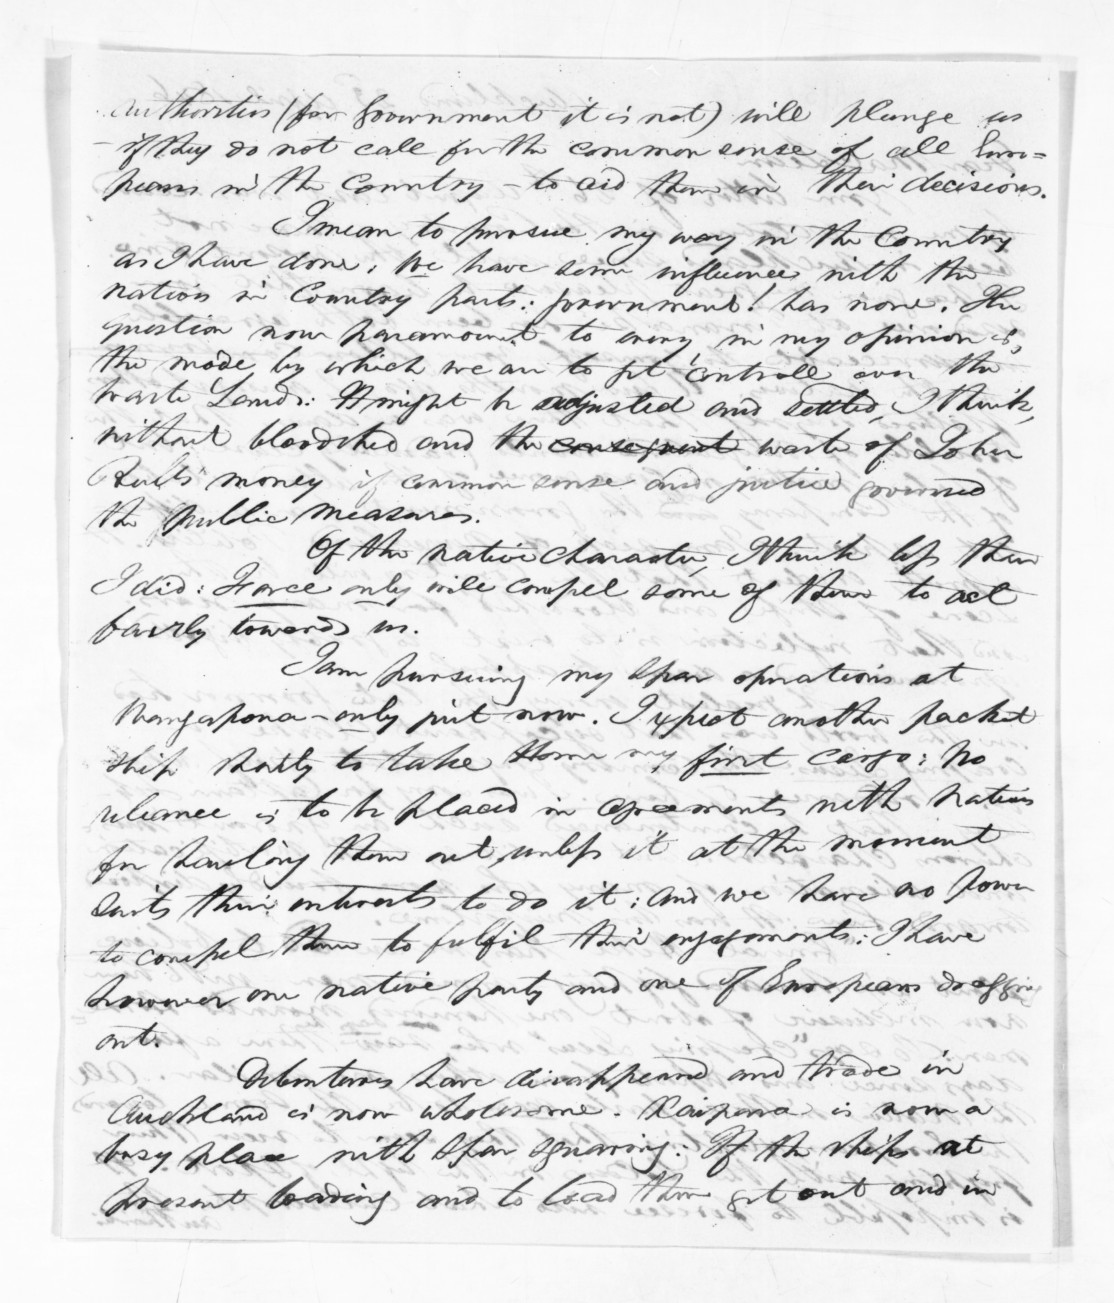 authorities (for Government it is not) will plunge us
– if they do not call forth the common sense of all Euro=
peans in the Country – to aid them in their decisions.
I mean to pursue my way in the Country
as I have done; We have some influence with the
natives in Country parts: Government! has none. The
question now paramount to every in my opinion is,
the mode by which we are to get controll over the
waste Lands: It might be adjusted and settled, I think,
without bloodshed and the consequent waste of John
Bull's money if common sense and justice governed
the public measures.
Of the native character, I think less than
I did: Force only will compel some of them to act
fairly towards us.
I am pursuing my Spar operations at
Mangapona – only just now. I expect another packet
ship shortly to take Home my first cargo: No
reliance is to be placed in agreements with natives
for hauling them out, unless it at the moment
suits their interests to do it; and we have no power
to compel them to fulfil their engagements: I have
however one native party and one of Europeans dragging
out.
Debentures have disappeared and trade in
Auckland is now wholesome. Kaipara is now a
busy place with Spar squaring: If the ships at
present loading and to load there get out and in